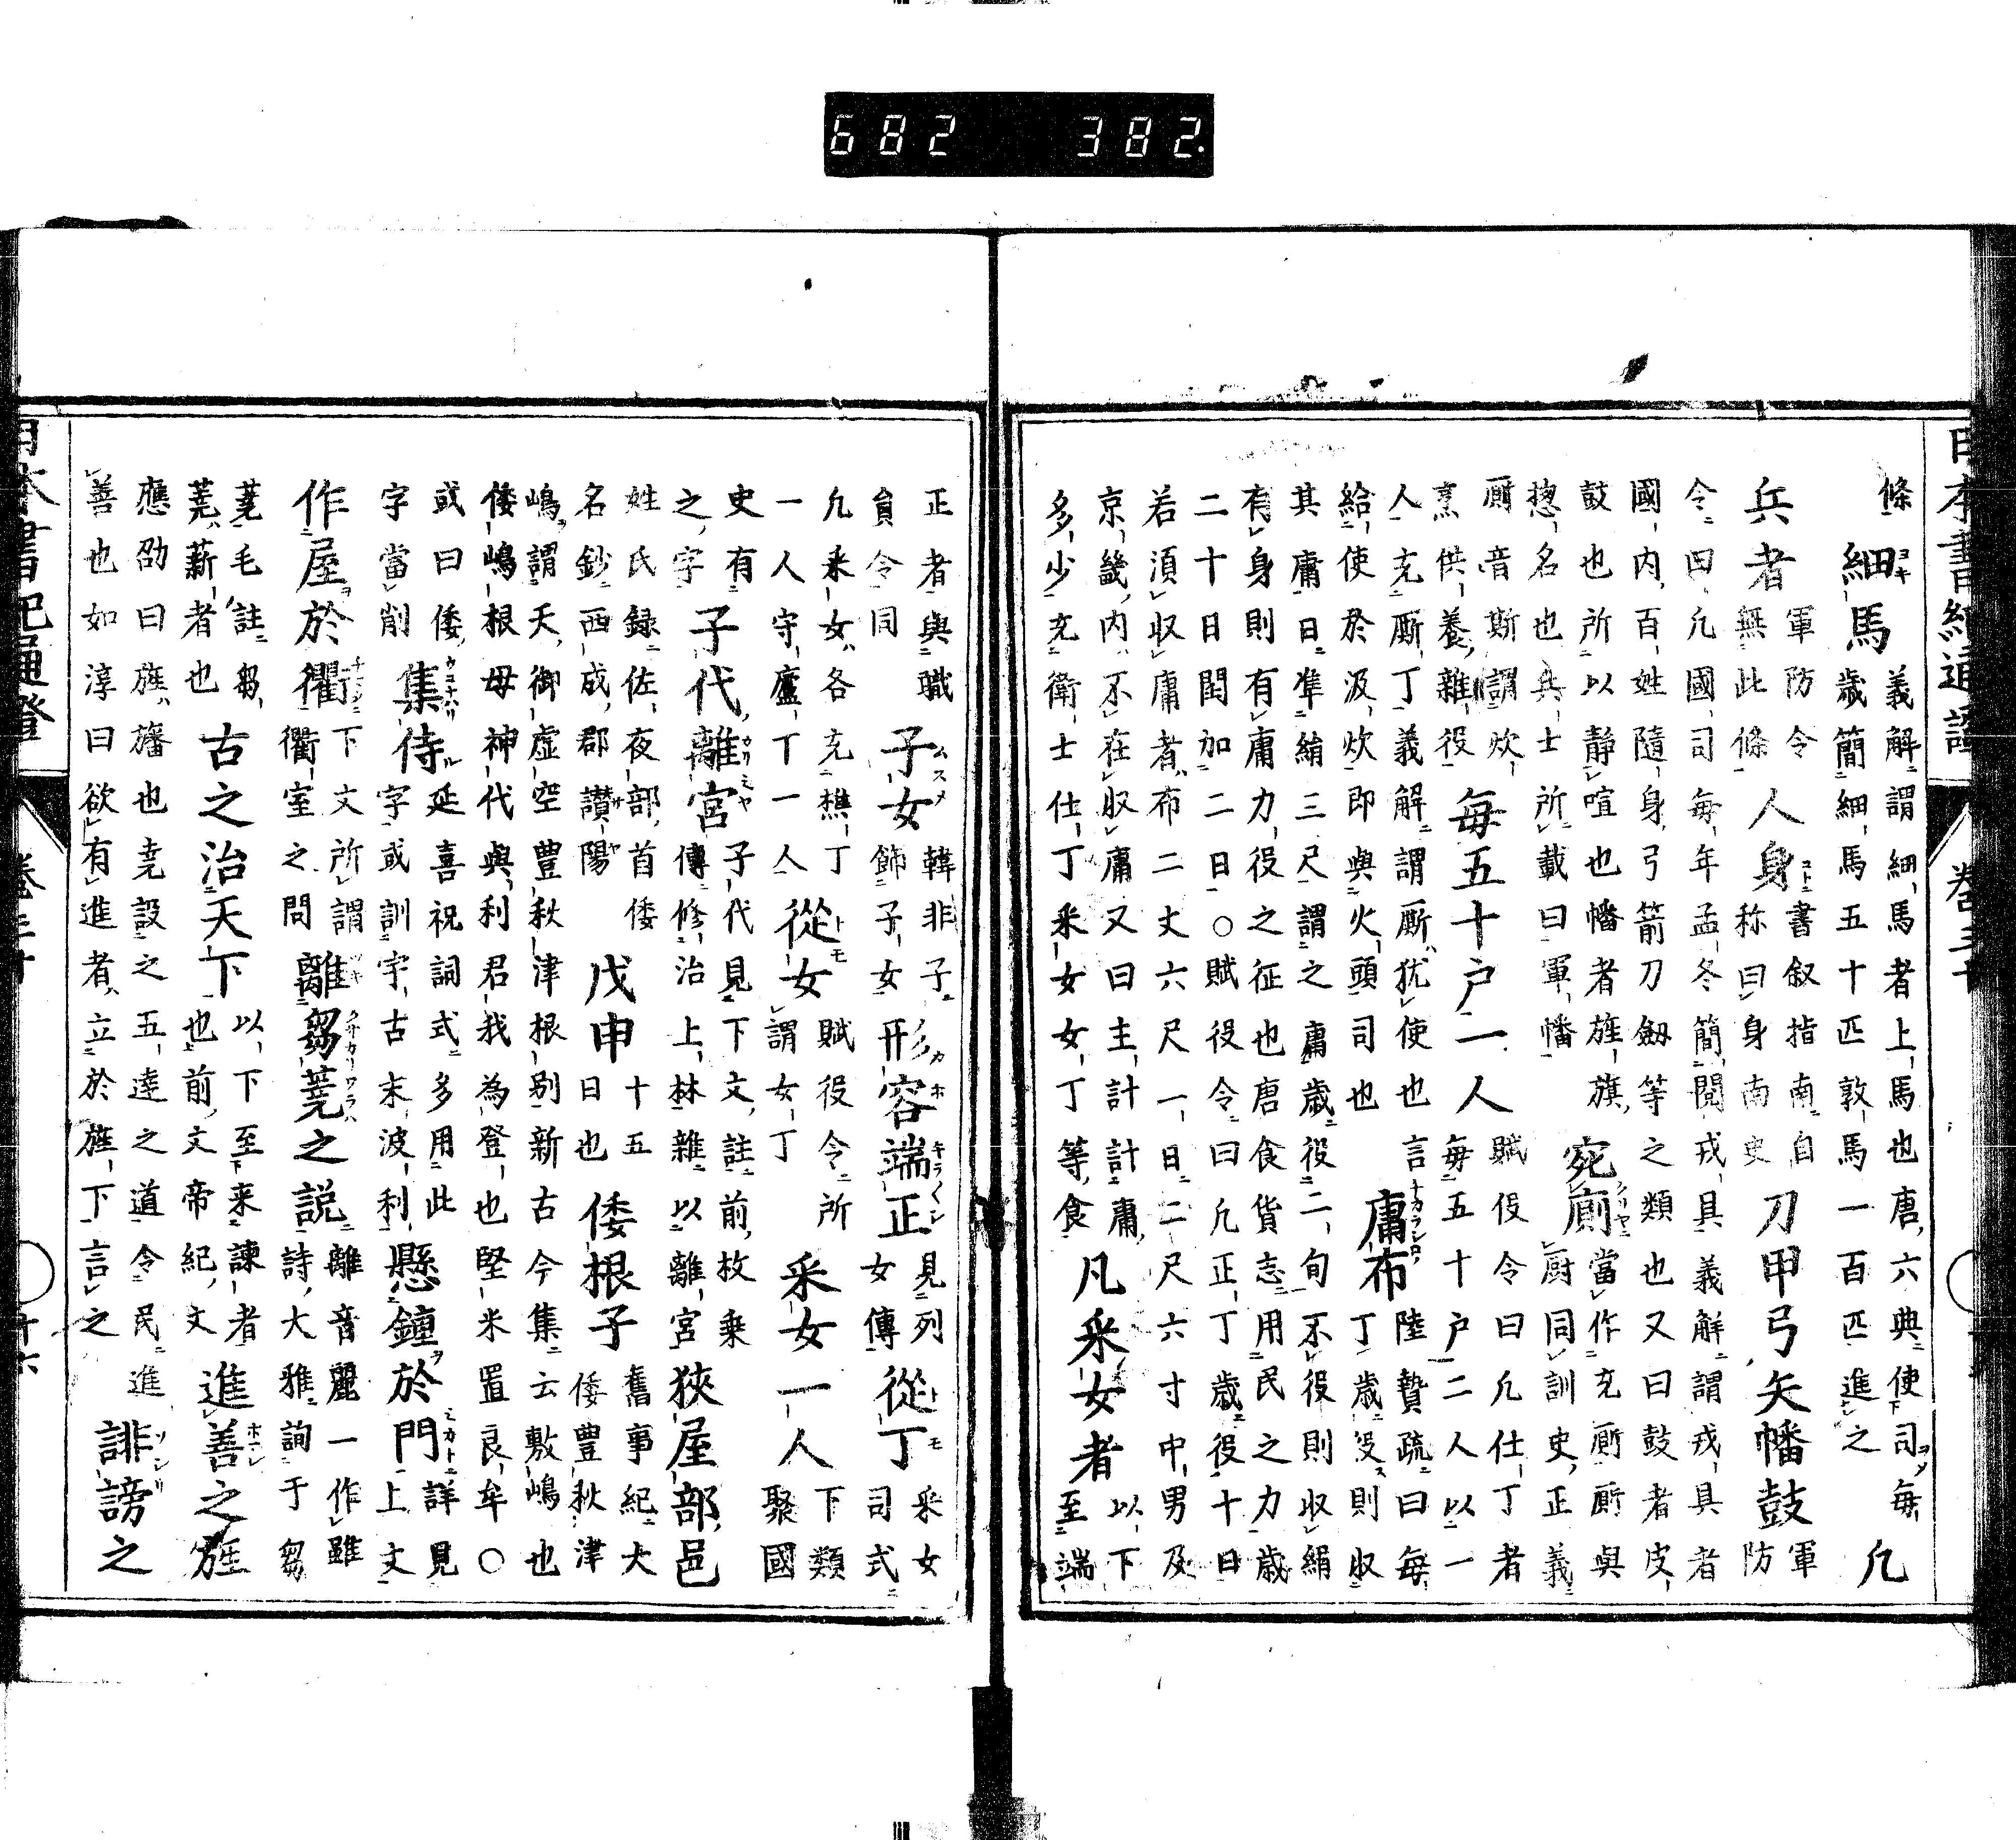 日本書紀通證 卷三十
條 細馬 義解謂細馬者上馬也唐六典使司每歲簡細馬五十匹敦馬一百匹進之 凡
兵者 軍防令無此條 人身 書叙指南自称曰身南史 刀甲弓矢幡鼓 軍防
令曰凡國司每年孟冬簡閲戎具義解謂戎具者國内百姓隨身弓箭刀劔等之類也又曰鼓者皮
鼓也所以靜喧也幡者旌旗揔名也兵士所載曰軍幡 宛廁 當作充廝廝與厨同訓史正義
廝音斯謂炊烹供養雜役 每五十户一人 賦役令曰凡仕丁者每五十户二人以一
人充廝丁義解謂廝猶使也言給使於汲炊即與火頭司也 庸布 陸贄疏曰每丁歲役則收
其庸日準絹三尺謂之庸歲役二旬不役則收絹有身則有庸力役之征也唐食貨志用民之力歲
二十日閏加二日○賦役令曰凡正丁歲役十日若須收庸者布二丈六尺一日二尺六寸中男及
京畿内不在收庸又曰主計計庸多少充衛士仕丁采女女丁等食 凡采女者 以下至端
正者與職員令同 子女 韓非子飾子女 形容端正 見列女傳 從丁 采女司式
凡采女各充樵丁一人守廬丁一人 從女 賦役令所謂女丁 采女一人 下類聚國
史有之字 子代離宮 子代見下文註前枚乗傳修治上林雜以離宮 狹屋部邑
姓氏録佐夜部首倭名鈔西成郡讃陽 戊申 十五日也 倭根子 舊事紀大倭豐秋津
嶋謂天御虛空豐秋津根别新古今集云敷嶋也倭嶋根母神代與利君我為登也堅米置良牟○
或曰倭字當削 集侍 延喜祝詞式多用此字或訓宇古末波利 懸鐘於門 詳見上文
作屋於衢 下文所謂衢室之問 離芻蕘之説 離音麗一作雖詩大雅詢于芻
蕘毛註芻蕘薪者也 古之治天下 以下至来諫者也前文帝紀文 進善之旌
應劭曰旌旛也尭設之五達之道令民進善也如淳曰欲有進者立於旌下言之 誹謗之
日本書紀通證 卷三十 廿六
682 382